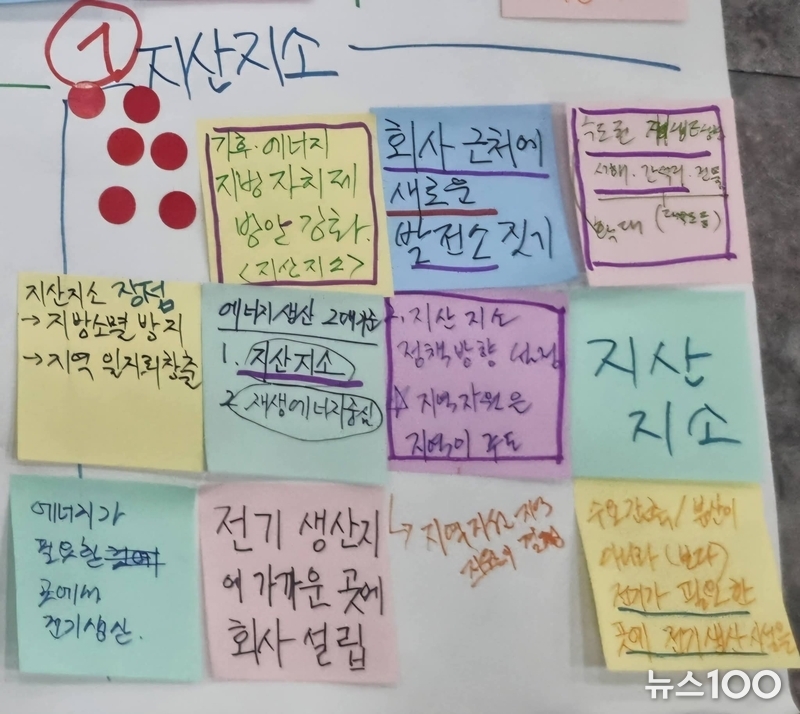 1 지산지소
기후·에너지
지방자치제
방안 강화.
<지산지소>
회사 근처에
새로운
발전소 짓기
수도권
서해·간척지·건물
확대
지산지소 장점
→ 지방소멸 방지
→ 지역 일자리창출
에너지생산 2대
1. 지산지소
2. 재생에너지중심
지산지소
정책방향
지역자원은
지역이 주도
지산
지소
에너지가
필요한
곳에서
전기생산.
전기 생산지
에 가까운 곳에
회사 설립
↳ 지역자원 지역
아니라 (보다)
전기가 필요한
곳에 전기생산 시설을
뉴스100